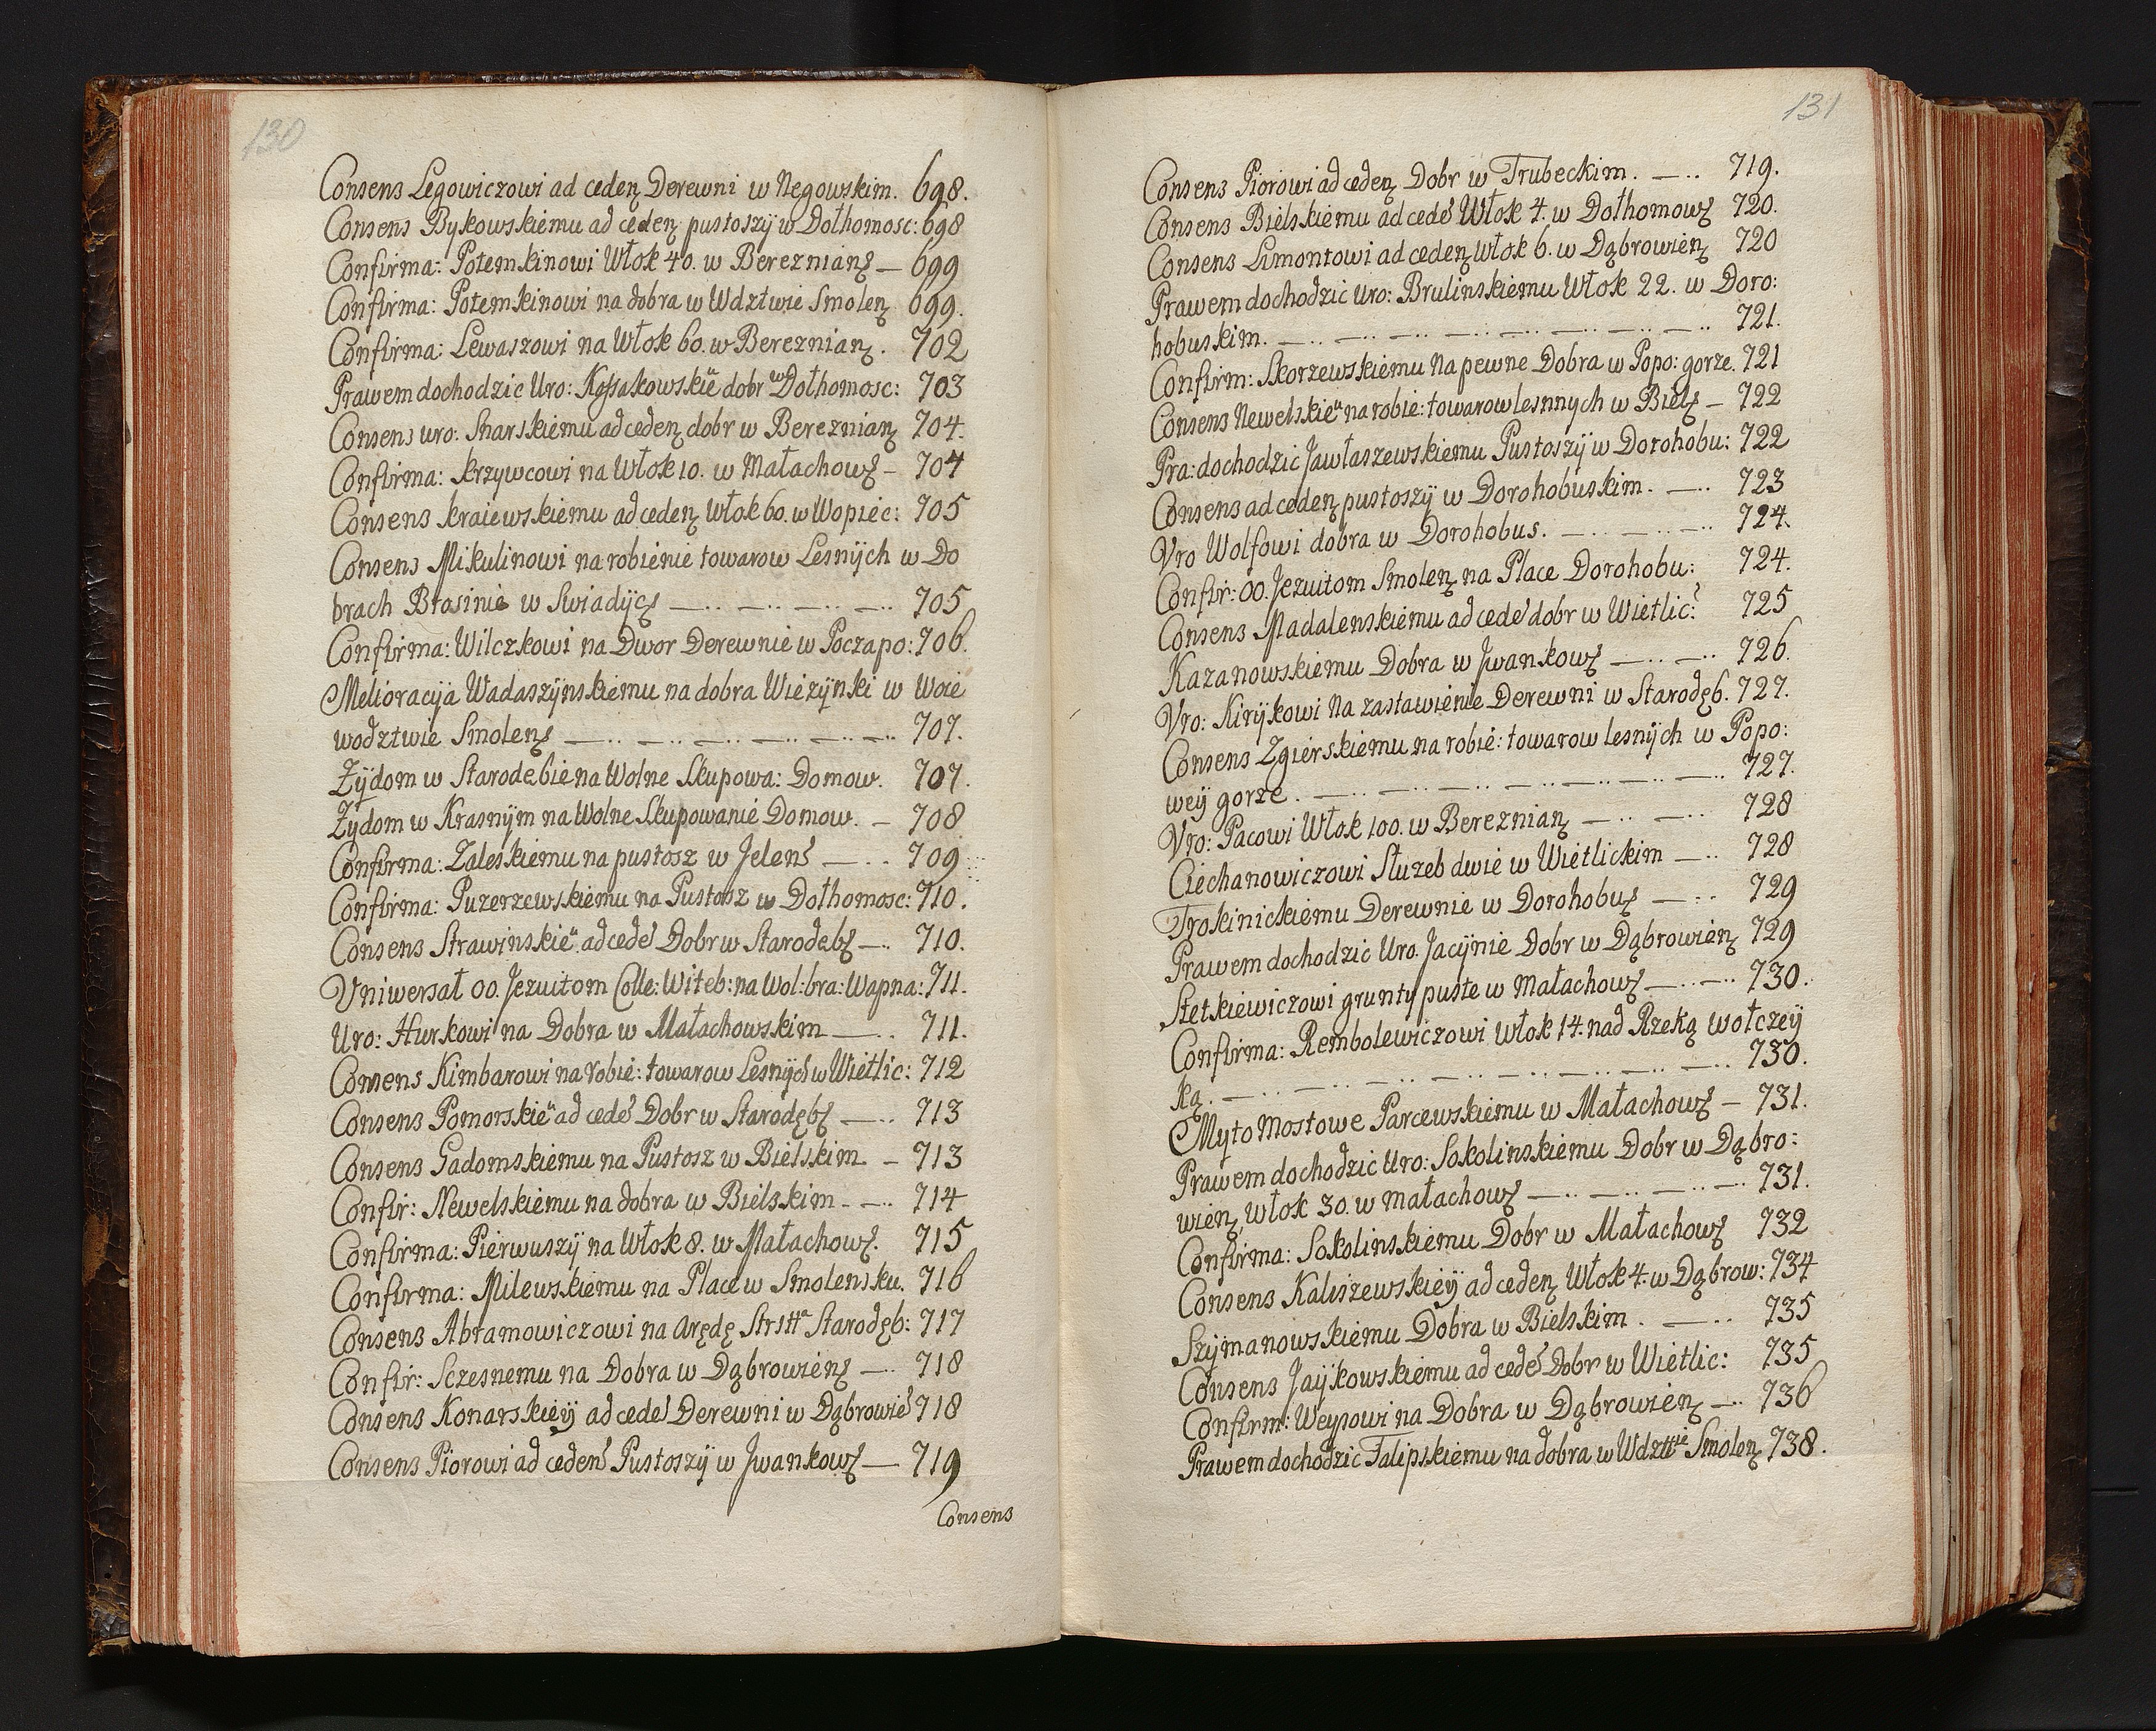 130
Consens Legowiczowi ad ceden Derewni w Negowskim. 698.
Consens Bykowskiemu ad ceden pustoszy w Dołhomosc: 698
Confirma: Potemkinowi Włok 40. w Berezniang — 699
Confirma: Potemkinowi na dobra w Wdztwie Smolen 699.
Confirma: Lewaszowi na Włok 60. w Bereznian. 702
Prawem dochodzic Uro: Kossakowskie dobr w Dołhomosc: 703
Consens uro: Snarskiemu ad ceden dobr w Bereznian 704.
Confirma: krzywcowi na Włok 10. w Małachows – 704
Consens kraiewskiemu ad ceden Włok 60. w Wopiec: 705
Consens Mikulinowi na robienie towarow Lesnÿch w Do
brach Brasinie w Swiadÿcs —.. —.. —.. —.. 705
Confirma: Wilczkowi na Dwor Derewnie w Poczapo: 706.
Melioracÿa Wadaszÿnskiemu na dobra Wiezÿnki w Woie
wodztwie Smolens —.. —.. —.. —.. —.. —.. 707.
Zÿdom w Starodebie na Wolne Skupowa: Domow. 707.
Zydom w Krasnÿm na Wolne Skupowanie Domow. – 708
Confirma: Zaleskiemu na pustosz w Jelens —.. 709
Confirma: Puzerzewskiemu na Pustosz w Dołhomosc: 710.
Consens Strawinskie ad cede Dobr w Starodebs —. 710.
Vniwersał OO. Jezuitom Colle: Witeb: na wol: bra: Wapna: 711.
Uro: Hurkowi na Dobra w Małachowskim —.. 711.
Consens Kimbarowi na robie: towarow Lesnÿch w Wietlic: 712
Consens Pomorskie ad cede Dobr w Starodębs —.. 713
Consens Gadomskiemu na Pustosz w Bielskim – 713
Confir: Newelskiemu na dobra w Bielskim. —.. 714
Confirma: Pierwuszÿ na Włok 8. w Małachows. 715
Confirma: Milewskiemu na Place w Smolensku. 716
Consens Abramowiczowi na Arędę Strstta Starodęb: 717
Confir: Sczesnemu na Dobra w Dąbrowiens —.. 718
Consens Konarskieÿ ad cede Derewni w Dąbrowie 718
Consens Piorowi ad ceden Pustoszÿ w Jwankows — 719
Consens
131
Consens Piorowi ad ceden Dobr w Trubeckim. —.. 719.
Consens Bielskiemu ad cede Włok 4. w Dołhomows 720.
Consens Limontowi ad ceden Włok 6. w Dąbrowien 720
Prawem dochodzic Uro: Brulinskiemu Włok 22. w Doro:
hobuskim. —.. —.. —.. —.. —.. —.. —.. 721.
Confirm: Skorzewskiemu Na pewne Dobra w Popo: gorze. 721
Consens Newelskie na robie: towarow lesnnych w Biels – 722
Pra: dochodzic Jawłaszewskiemu Pustoszÿ w Dorohobu: 722
Consens ad ceden pustoszÿ w Dorohobuskim. —.. 723
Vro Wolfowi dobra w Dorohobus. —.. —.. —.. 724.
Confir: OO. Jezuitom Smolen na Place Dorohobu: 724.
Consens Madalenskiemu ad cede dobr w Wietlic: 725
Kazanowskiemu Dobra w Jwankows —.. —.. 726.
Vro: Kirÿkowi Na zastawienie Derewni w Starodęb. 727.
Consens Zgierskiemu na robie: towarow lesnÿch w Popo:
weÿ gorze. —.. —.. —.. —.. —.. —.. 727.
Vro: Pacowi Włok 100. w Bereznian —.. —.. 728
Ciechanowiczowi Służeb dwie w Wietlickim —.. 728
Trokinickiemu Derewnie w Dorohobus —.. 729
Prawem dochodzic Uro. Jacÿnie Dobr w Dąbrowien 729
Stetkiewiczowi grunty puste w Małachows —.. —.. 730.
Confirma: Rembolewiczowi Włok 14. nad Rzeką Wołczeÿ
ką. —.. —.. —.. —.. —.. —.. —.. 730.
Myto Mostowe Parcewskiemu w Małachows – 731.
Prawem dochodzic Uro: Sokolinskiemu Dobr w Dąbro:
wien, Włok 30. w Małachows —.. —.. —.. —.. 731.
Confirma: Sokolinskiemu Dobr w Małachows 732
Consens Kaliszewskieÿ ad ceden Włok 4. w Dąbrow: 734
Szÿmanowskiemu Dobra w Bielskim. —.. 735
Consens Jaÿkowskiemu ad cede Dobr w Wietlic: 735
Confirm: Weysowi na Dobra w Dąbrowien —.. 736
Prawem dochodzic Talipskiemu na dobra w Wdzttie Smolen 738.